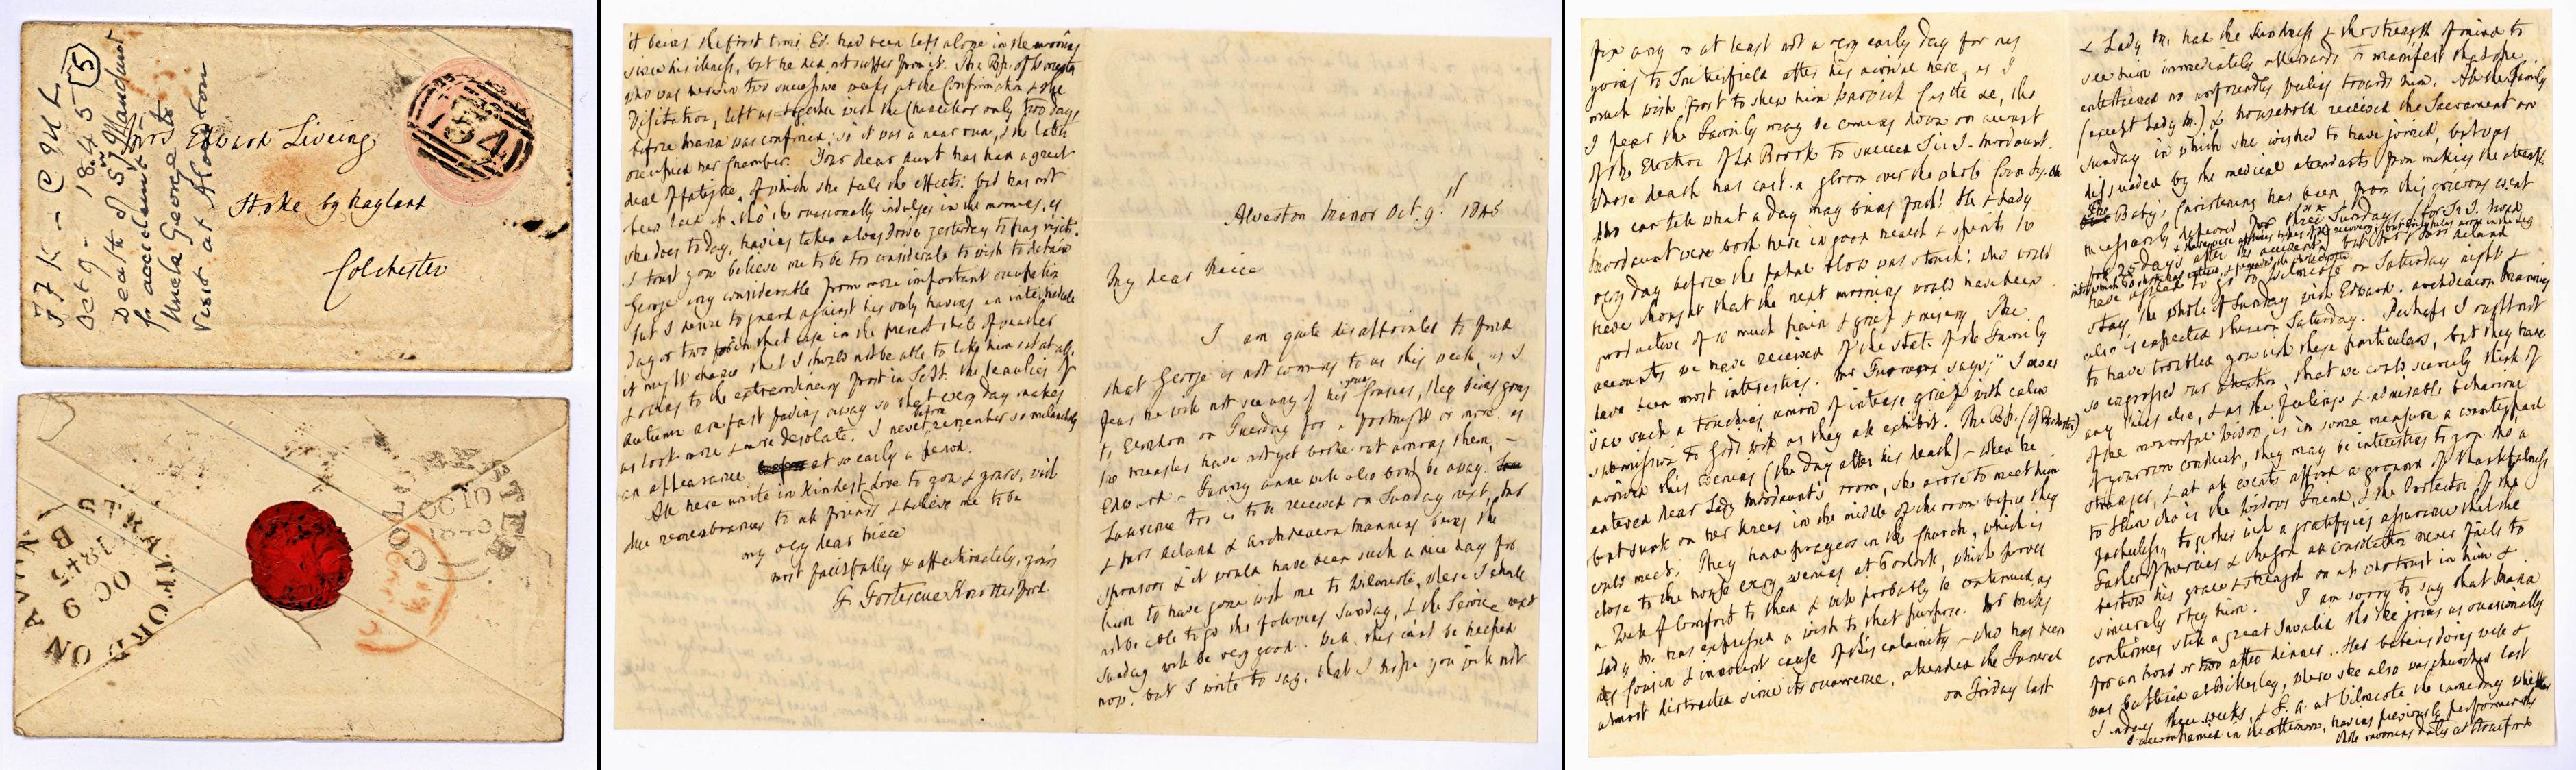 F F K - C M L
Oct 9 - 1845 (5)
Death of Sir J Mordaunt
fr accident
Uncle George to
visit at Alveston
Mrs Edward Liveing
Stoke by Nayland
Colchester
754
STRATFORD ON AVON
OC 9
1845
B
COLCHESTER
OC 10
1845
it being the first time Ed. had been left alone in the morning
since his illness, but he did not suffer from it. The Bp. of Worcester
who was here in two successive weeks at the Confirmation & the
Visitation, left us together with the Chancellor only two days
before Maria was confined; so it was a near run, & the latter
occupied her chamber. Your dear aunt has had a great
deal of fatigue, of which she feels the effects: but has not
been laid up, tho' she occasionally indulges in the morning, as
she does to day, having taken a long drive yesterday to pay visits.
I trust you believe me to be too considerate to wish to detain
George very considerable from more important
but I desire to guard against his only having an intermediate
day or two when that case in the present state of weather
it might chance that I should not be able to take him out at all.
& owing to the extraordinary frost in Sept. the beauties of
Autumn are fast fading away so that every day makes
us look more & more desolate. I never before remember so melancholy
an appearance at so early a period.
All here unite in kindest love to you & yours, with
due remembrances to all friends & believe me to be
my very dear Niece
most faithfully & affectionately, yours
F Fortescue Knottesford
Alveston Manor Oct. 9th 1845
My dear Niece
I am quite disappointed to find
that George is not coming to us this week, as I
fear he will not see any of his young Cousins, they being going
to London on Tuesday for a fortnight or more. as
the measles have not yet broke out among them, -
Edward & Fanny Anne will also both be away.
Laurence too is to be received on Sunday next, &
& Mrs Acland & Archdeacon Manning being the
sponsors & it would have been such a nice day for
him to have gone with me to Wilmcote, where I shall
not be able to go the following Sunday, & the Service next
Sunday will be very good. Well, this can't be helped
now, but I write to say, that I hope you will not
fix any or at least not a very early day for his
going to Snitterfield after his arrival here, as I
much wish first to shew him Warwick Castle &c, tho
I fear the Family may be coming down on account
of the Election of Ld Brook to succeed Sir J. Mordaunt.
Whose death has cast a gloom over the whole Country. Oh
who can tell what a day may bring forth! He & Lady
Mordaunt were both here in good health & spirits the
very day before the fatal blow was struck: who would
have thought that the next morning would have been
productive of so much pain & grief & misery. The
accounts we have received of the state of the Family
have been most interesting. Mr says; "I never
"saw such a touching union of intense grief with calm
"submission to God's will as they all exhibit. The Bp. (of Rochester)
arrived this evening (the day after his death) - when he
entered dear Lady Mordaunt's room, she arose to meet him
but sunk on her knees in the middle of the room before they
could meet. They had prayers in the Church, which is
close to the house every evening at 6 o'clock, which proves
a well of comfort to them & will probably be continued as
Lady M. has expressed a wish to that purpose. Mr
his Cousin & innocent cause of this calamity - who has been
almost distracted since its occurrence, attended the Funeral
on Friday last
& Lady M. had the kindness & the strength of mind to
see him immediately afterwards to manifest that she
entertained no unfriendly feeling towards him. All the family
(except Lady M.) & household received the Sacrament on
Sunday in which she wished to have joined, but was
dissuaded by the medical attendants from making the attempt.
The Baby's Christening has been from this grievous event
necessarily deferred for three Sundays (for Sir J. lived
for 25 days after the accident) but Mr & Mrs Acland
have agreed to go to Wilmcote on Saturday night &
stay the whole of Sunday with Edward. Archdeacon Manning
also is expected there on Saturday. Perhaps I ought not
to have troubled you with these particulars, but they have
so engrossed our attention, that we could scarcely think of
any thing else, & as the feelings & admirable behaviour
of the mournful widow is in some measure a counterpart
of your own conduct, they may be interesting to you tho a
stranger, & at all events afford a ground of thankfulness
to Him who is the Widows Friend, & the Protector of the
fatherless, together with a gratifying assurance that the
Father of mercies & the God of all consolation never fails to
bestow his grace & strength on all who trust in him &
sincerely obey him. I am sorry to say that Maria
continues still a great Invalid tho' she joins us occasionally
for an hour or two after dinner. Her baby is doing well &
was baptized at Billesley, where she also was churched last
Sunday three weeks, & F. A. at Wilmcote the same day whither
I accompanied in the afternoon, having previously performed the
whole morning duty at Stratford